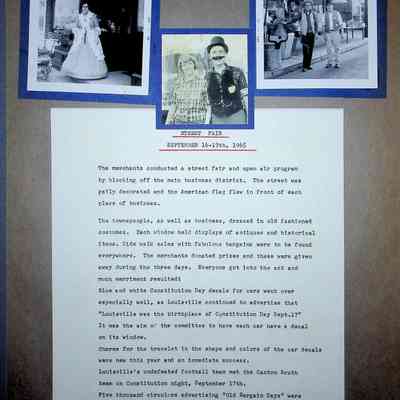 STREET FAIR
SEPTEMBER 16-19th, 1965
The merchants conducted a street fair and open air program
by blocking off the main business district. The street was
gaily decorated and the American flag flew in front of each
place of business.
The townspeople, as well as business, dressed in old fashioned
costumes. Each window held displays of antiques and historical
items. Side walk sales with fabulous bargains were to be found
everywhere. The merchants donated prizes and these were given
away during the three days. Everyone got into the act and
much merriment resulted!
Blue and white Constitution Day decals for cars went over
especially well, as Louisville continued to advertise that
"Louisville was the birthplace of Constitution Day Sept.17"
It was the aim of the committee to have each car have a decal
on its window.
Charms for the bracelet in the shape and colors of the car decals
were new this year and an immediate success.
Louisville's undefeated football team met the Canton South
team on Constitution night, September 17th.
Five thousand circulars advertising "Old Bargain Days" were